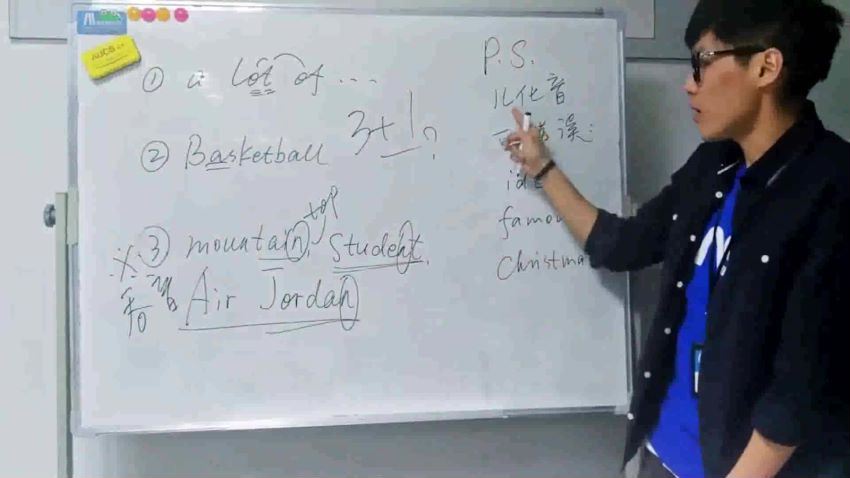 ① a lot of ...
② Basketball 3+1?
③ mountain, top student,
Air Jordan
P.S.
儿化音
famou
Christma